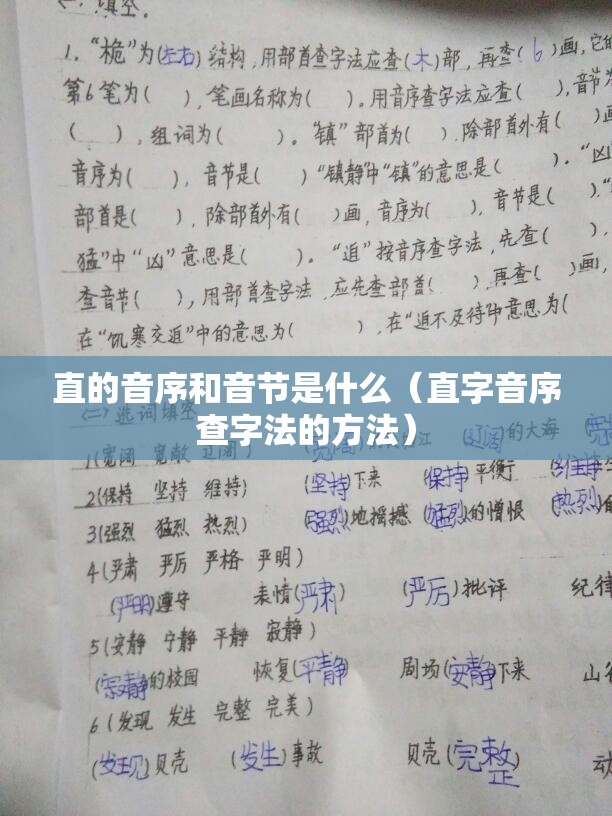 一、填空.
1. “桅”为(左右)结构,用部首查字法应查(木)部,再查(6)画,它的
第6笔为(  ),笔画名称为(  )。用音序查字法应查(  ),音节为
(  ),组词为(  )。“镇”部首为(  ).除部首外有(  )画
音序为(  ),音节是(  )“镇静”中“镇”的意思是(  )。“凶”
部首是(  ),除部首外有(  )画,音序为(  ),音节是(  ).“
猛”中“凶”意思是(  )。“迫”按音序查字法,先查(  ),
查音节(  ),用部首查字法,应先查部首(  ),再查(  )画,
在“饥寒交迫”中的意思为(  ),在“迫不及待”中意思为(
直的音序和音节是什么(直字音序
查字法的方法)
(二)选词填空
1(宽阔 宽敞 辽阔) (宽阔)的 江 (辽阔)的大海 (宽
2(保持 坚持 维持) (坚持)下来 (保持)平衡 (维持
3(强烈 猛烈 热烈) (强烈)地摇撼 (猛烈)的憎恨 (热烈)的
4(严肃 严厉 严格 严明)
(严明)遵守 表情(严肃) (严厉)批评 纪律
5(安静 宁静 平静 寂静)
(寂静)的校园 恢复(平静 剧场(安静)下来 山谷
6(发现 发生 完整 完美)
(发现)贝壳 (发生)事故 贝壳(完整) 动